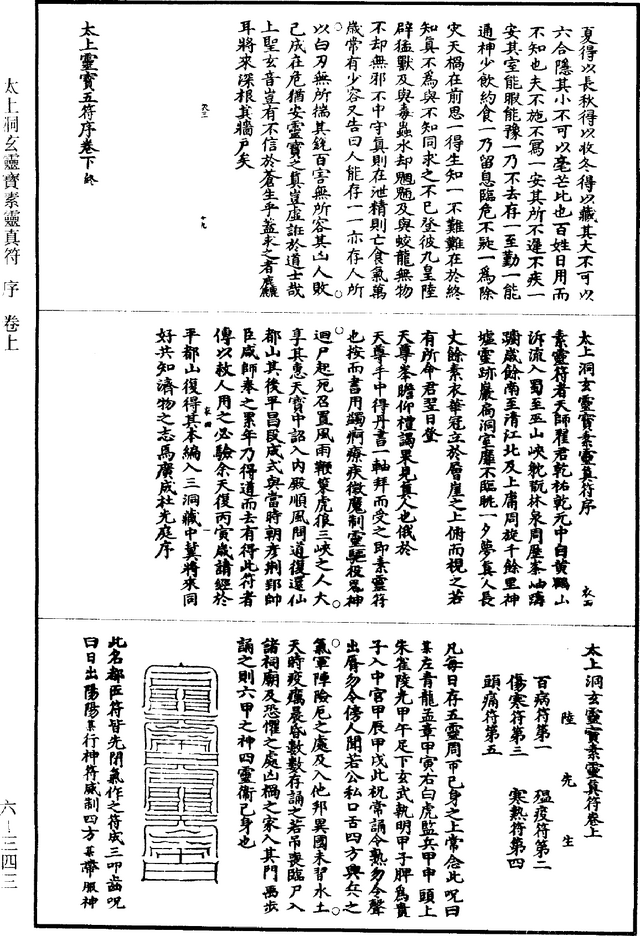 夏得以長秋得以收冬得以藏其大不可以
六合隱其小不可以毫芒比也百姓日用而
不知也夫不施不寫一安其所不遲不疾一
安其室能服能豫一乃不去存一至勤一能
通神少飲約食一乃留息臨危不疑一為除
灾天禍在前思一得生知一不難難在於終
知真不為與不知同求之不已登彼九皇陸
辟猛獸及與毒蟲水却魍魎及與蛟龍無物
不却無邪不中守真則在泄精則亡食氣萬
歲常有少容又告曰人能存一一亦存人所
以白刃無所揣其銳百害無所容其凶人敗
己成在危猶安靈寶之真豈虛誑於道士哉
上聖玄音豈有不信於蒼生乎蓋求之者麁
耳將來深根其牆戶矣
太上靈寶五符序卷下終
太上洞玄靈寶素靈真符序
素靈符者天師翟君乾祐乾元中自黃鶴山
泝流入蜀至巫山峽躭翫林泉周歷峯岫躊
躅歲餘南至清江北及上庸周旋千餘里神
墟靈跡巖高洞室靡不臨眺一夕夢真人長
丈餘素衣華冠立於層崖之上俯而視之若
有所命君翌日登
天尊峯瞻仰禮謁果見真人也俄於
天尊手中得丹書一軸拜而受之即素靈符
也按而書用蠲痾療疾徵魔制靈驅役鬼神
迴尸起死召置風雨鞭箠虎狼三峽之人大
享其惠天寶中詔入内殿順風問道復還仙
都山其後平昌段成式與當時朝彥荆郢帥
臣咸師奉之累年乃得道而去有得此符者
傳以救人用之必驗余天復丙寅歲請經於
平都山復得其本編入三洞藏中冀將來同
好共知濟物之志焉廣成杜光庭序
太上洞玄靈寶素靈真符卷上
陸先生
百病符第一
瘟疫符第二
傷寒符第三
寒熱符第四
頭痛符第五
凡每日存五靈周帀已身之上常念此呪曰
某左青龍孟章甲寅右白虎監兵甲申頭上
朱雀陵光甲午足下玄武執明甲子脾為貴
子入中宮甲辰甲戌此祝常誦令熟勿令聲
出脣勿令傍人聞若公私口舌四方興兵之
氣軍陣險厄之處及入他邦異國未習水土
天時疫癘晨昏數數存誦之若吊喪臨尸入
諸祠廟及恐懼之處凶禍之家入其門禹步
誦之則六甲之神四靈衞已身也
此名都匠符皆先閉氣作之符成三叩齒呪
曰日出陽陽某行神符威制四方某帶服神
太上洞玄靈寶素靈真符 序 卷上
六—三四三